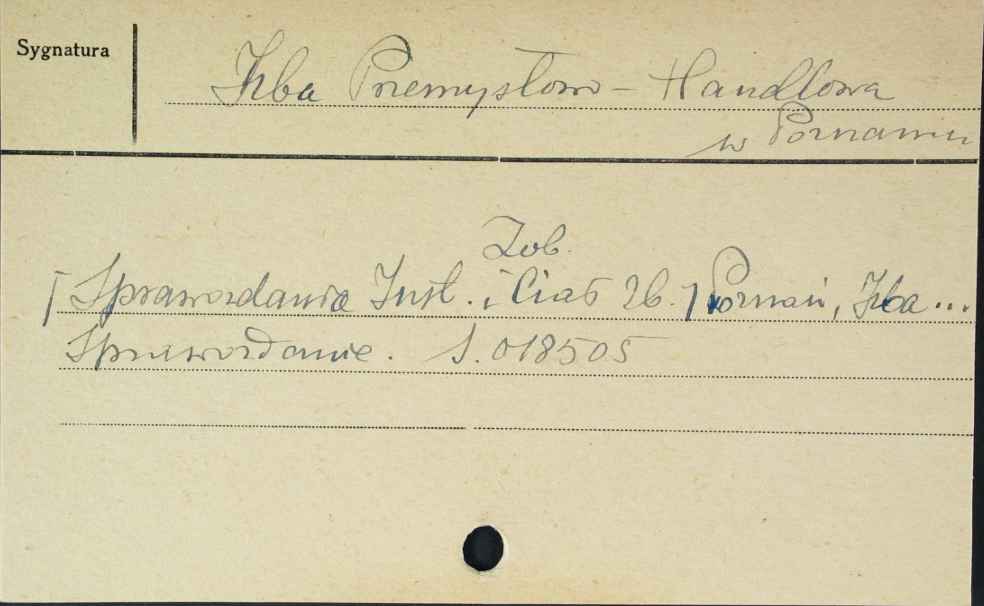 Sygnatura
Izba Przemysłowo - Handlowa
w Poznaniu
Zob.
[Sprawozdania Inst. i Ciał Zb.] Poznań, Izba ...
Sprawozdanie. S. 018505